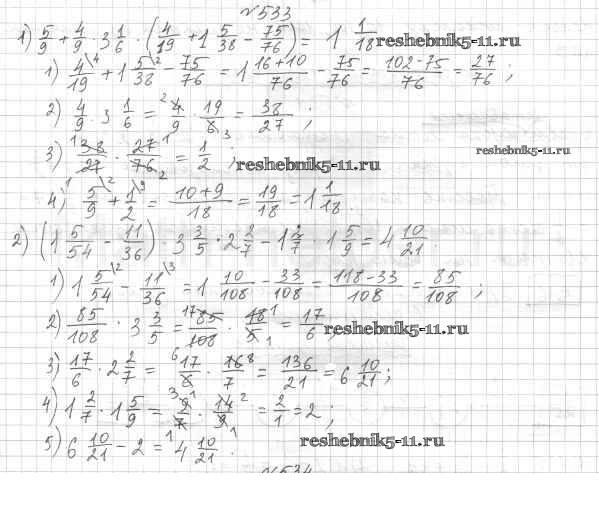 №533
1) 5/9 + 4/9 · 3 1/6 · (4/19 + 1 5/38 − 75/76) = 1 1/18
reshebnik5-11.ru
1) 4/19 \4 + 1 5/38 \2 − 75/76 = 1 (16+10)/76 − 75/76 = (102−75)/76 = 27/76 ;
2) 4/9 · 3 1/6 = ²4/9 · 19/6 ₃ = 38/27 ;
reshebnik5-11.ru
3) ¹38/27 · 27/76 ¹₂ = 1/2 ;
reshebnik5-11.ru
4) 5/9 \2 + 1/2 \9 = (10+9)/18 = 19/18 = 1 1/18 .
2) (1 5/54 − 11/36) · 3 3/5 · 2 2/7 − 1 2/7 · 1 5/9 = 4 10/21 .
1) 1 5/54 \2 − 11/36 \3 = 1 10/108 − 33/108 = (118−33)/108 = 85/108 ;
2) 85/108 · 3 3/5 = ¹⁷85/108 · 18/5 ¹₁ = 17/6
reshebnik5-11.ru
3) 17/6 · 2 2/7 = 17/6 · 16/7 ⁸ = 136/21 = 6 10/21 ;
4) 1 2/7 · 1 5/9 = 9/7 · 14/9 ² = 2/1 = 2 ;
5) 6 10/21 − 2 = 4 10/21 .
reshebnik5-11.ru
№534